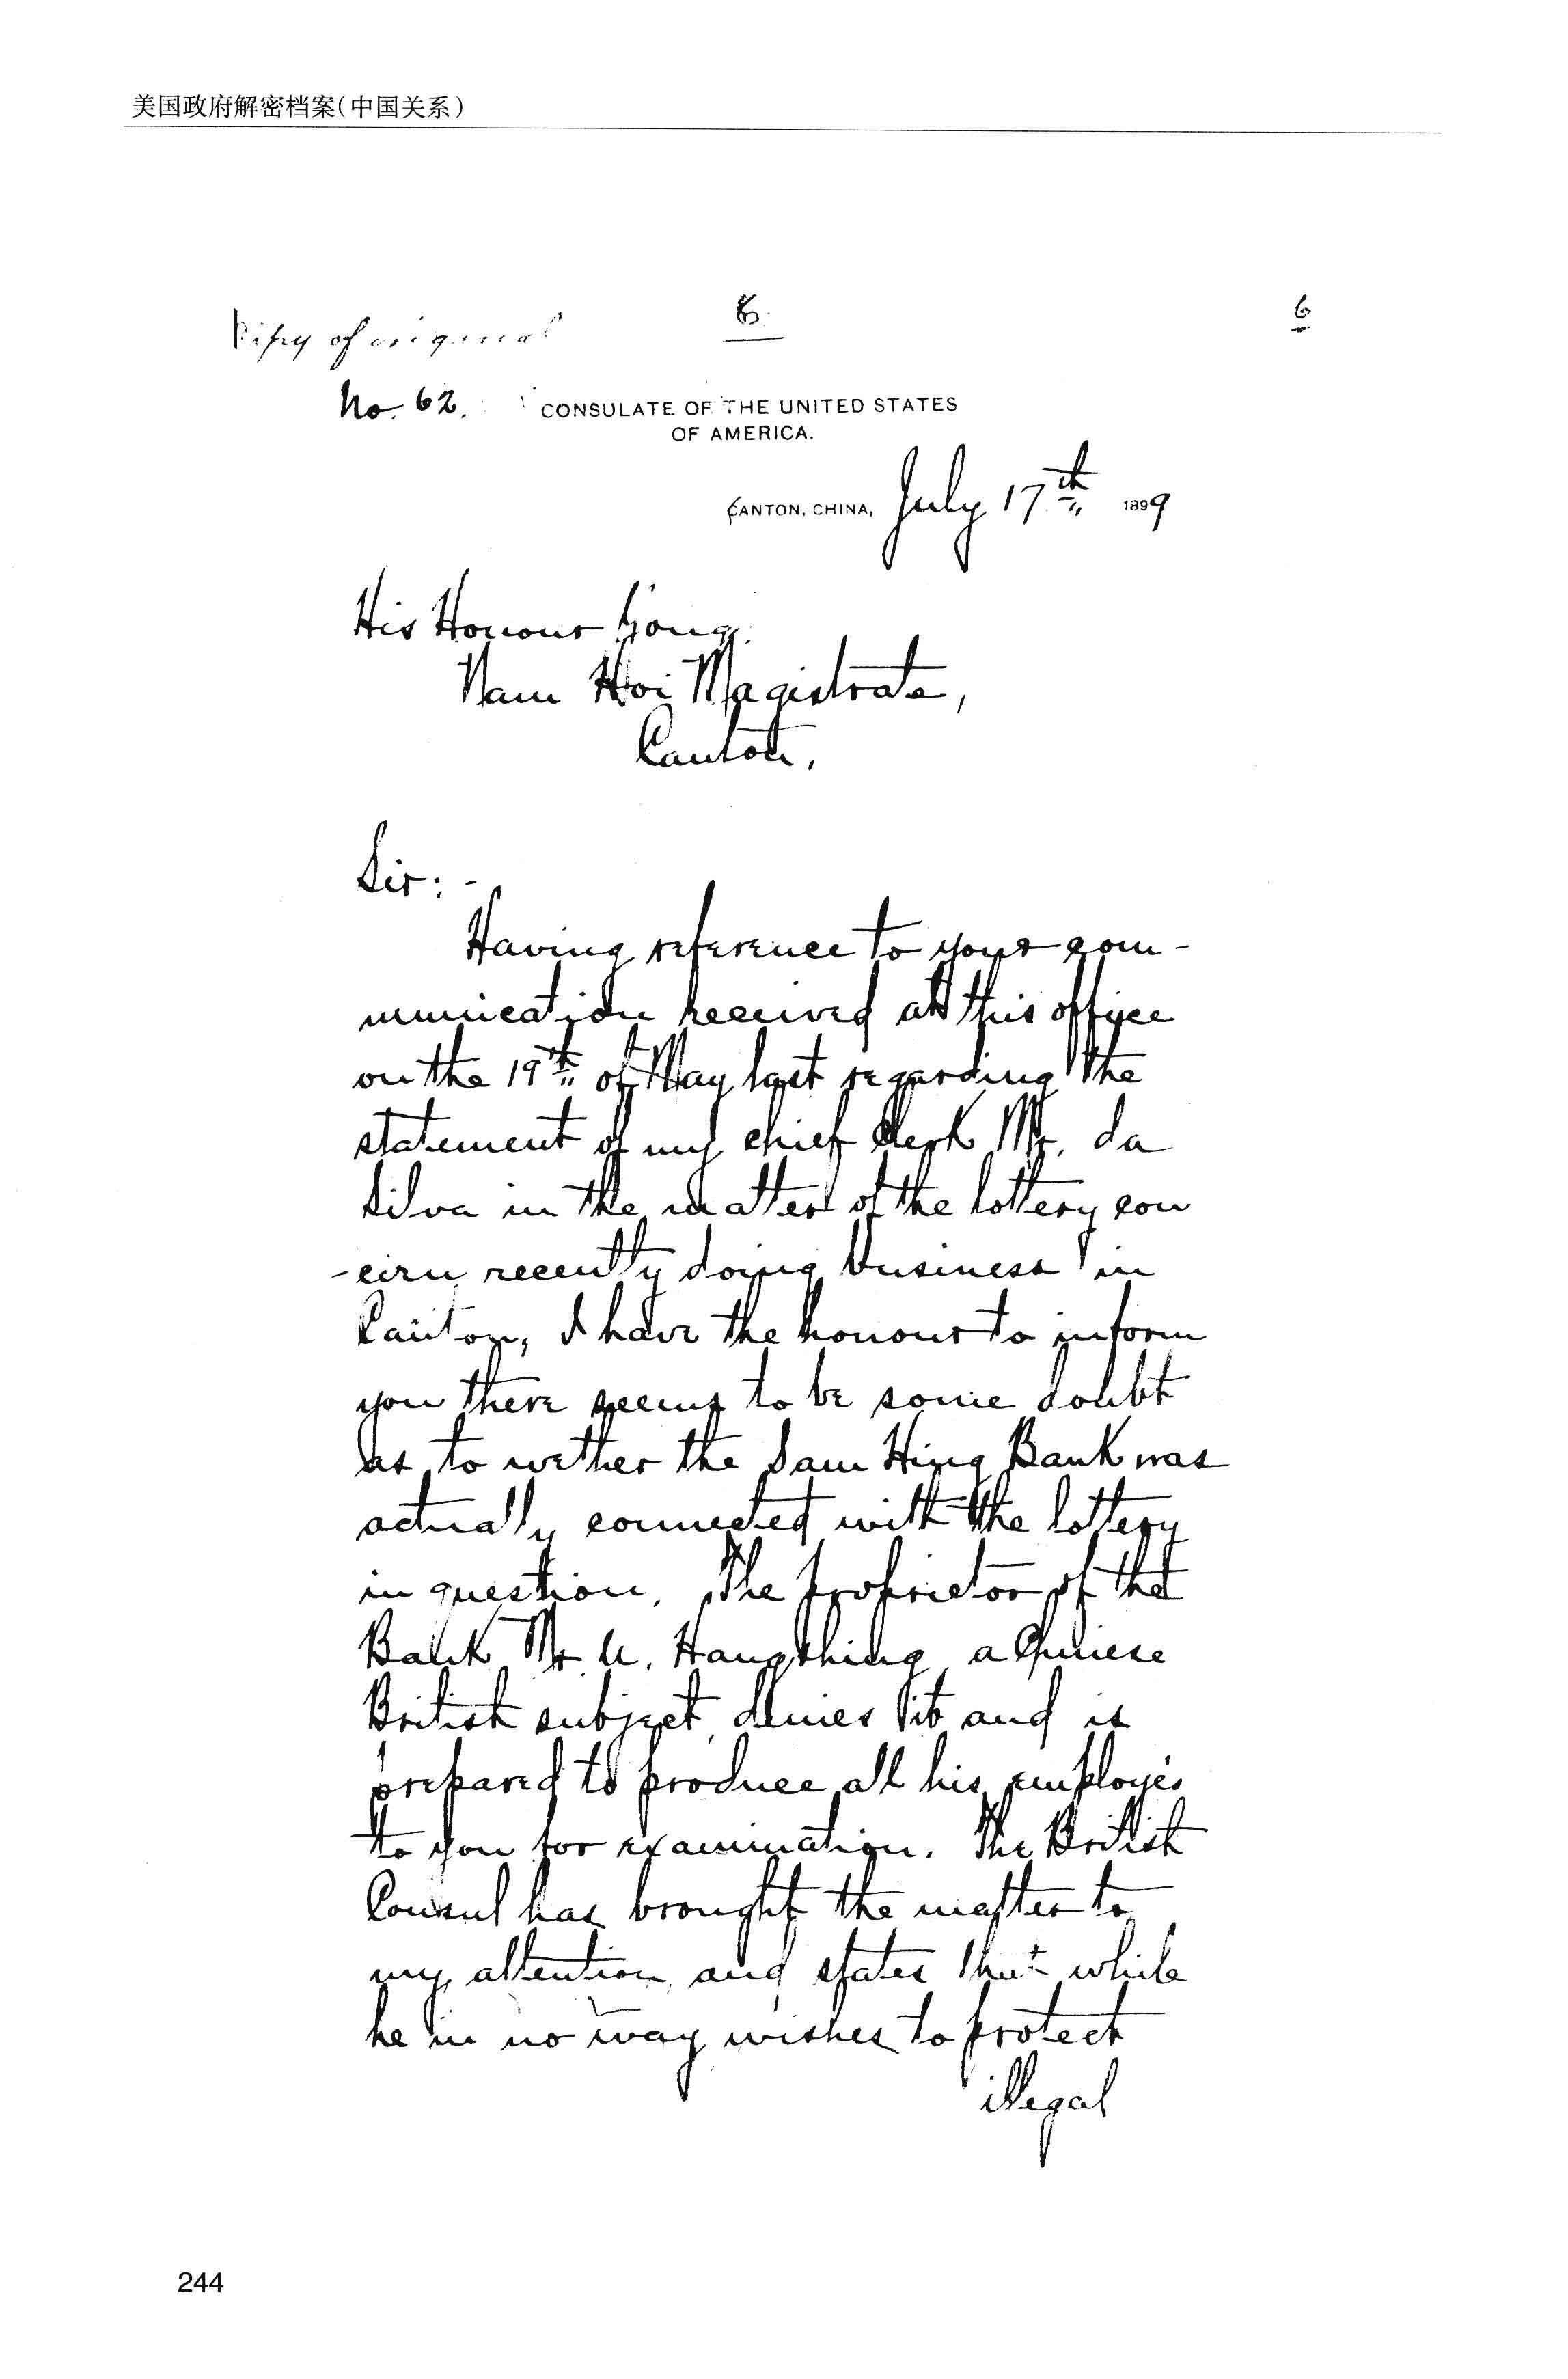 美国政府解密档案(中国关系)
6
6
Copy of original
No. 62.
CONSULATE OF THE UNITED STATES
OF AMERICA.
CANTON, CHINA, July 17th 1899
His Honour
Nam Hoi Magistrate,
Canton,
Sir:-
Having reference to your com-
munication received at this office
on the 19th of May last regarding the
statement of my chief clerk Mr. da
Silva in the matter of the lottery con
-cern recently doing business in
Canton, I have the honour to inform
you there seems to be some doubt
as to wether the Sam Hing Bank was
actually connected with the lottery
in question. The proprietor of the
Bank Mr. U. Hangshing a Chinese
British subject, denies it and is
prepared to produce all his employés
to you for examination. The British
Consul has brought the matter to
my attention and states that while
he in no way wishes to protect
illegal
244